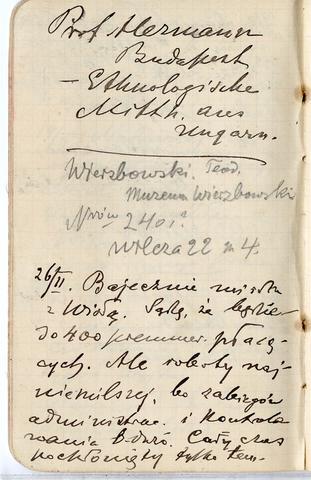 Prof Hermann
Budapest
– Ethnologische
Mitth. aus
Ungarn.
Wierzbowski. Teod.
Muzeum Wierzbowski
2401
wilcza 22 m 4.
26/II. Bajecznie mi
z Wisłą. Sądzę, że będzie
do 400 prenumer. płacą-
cych. Ale roboty naj-
niemilszej, bo zabiegów
administrac. i kontrolo
wania b. dużo. Cały czas
pochłonięty tylko tem-